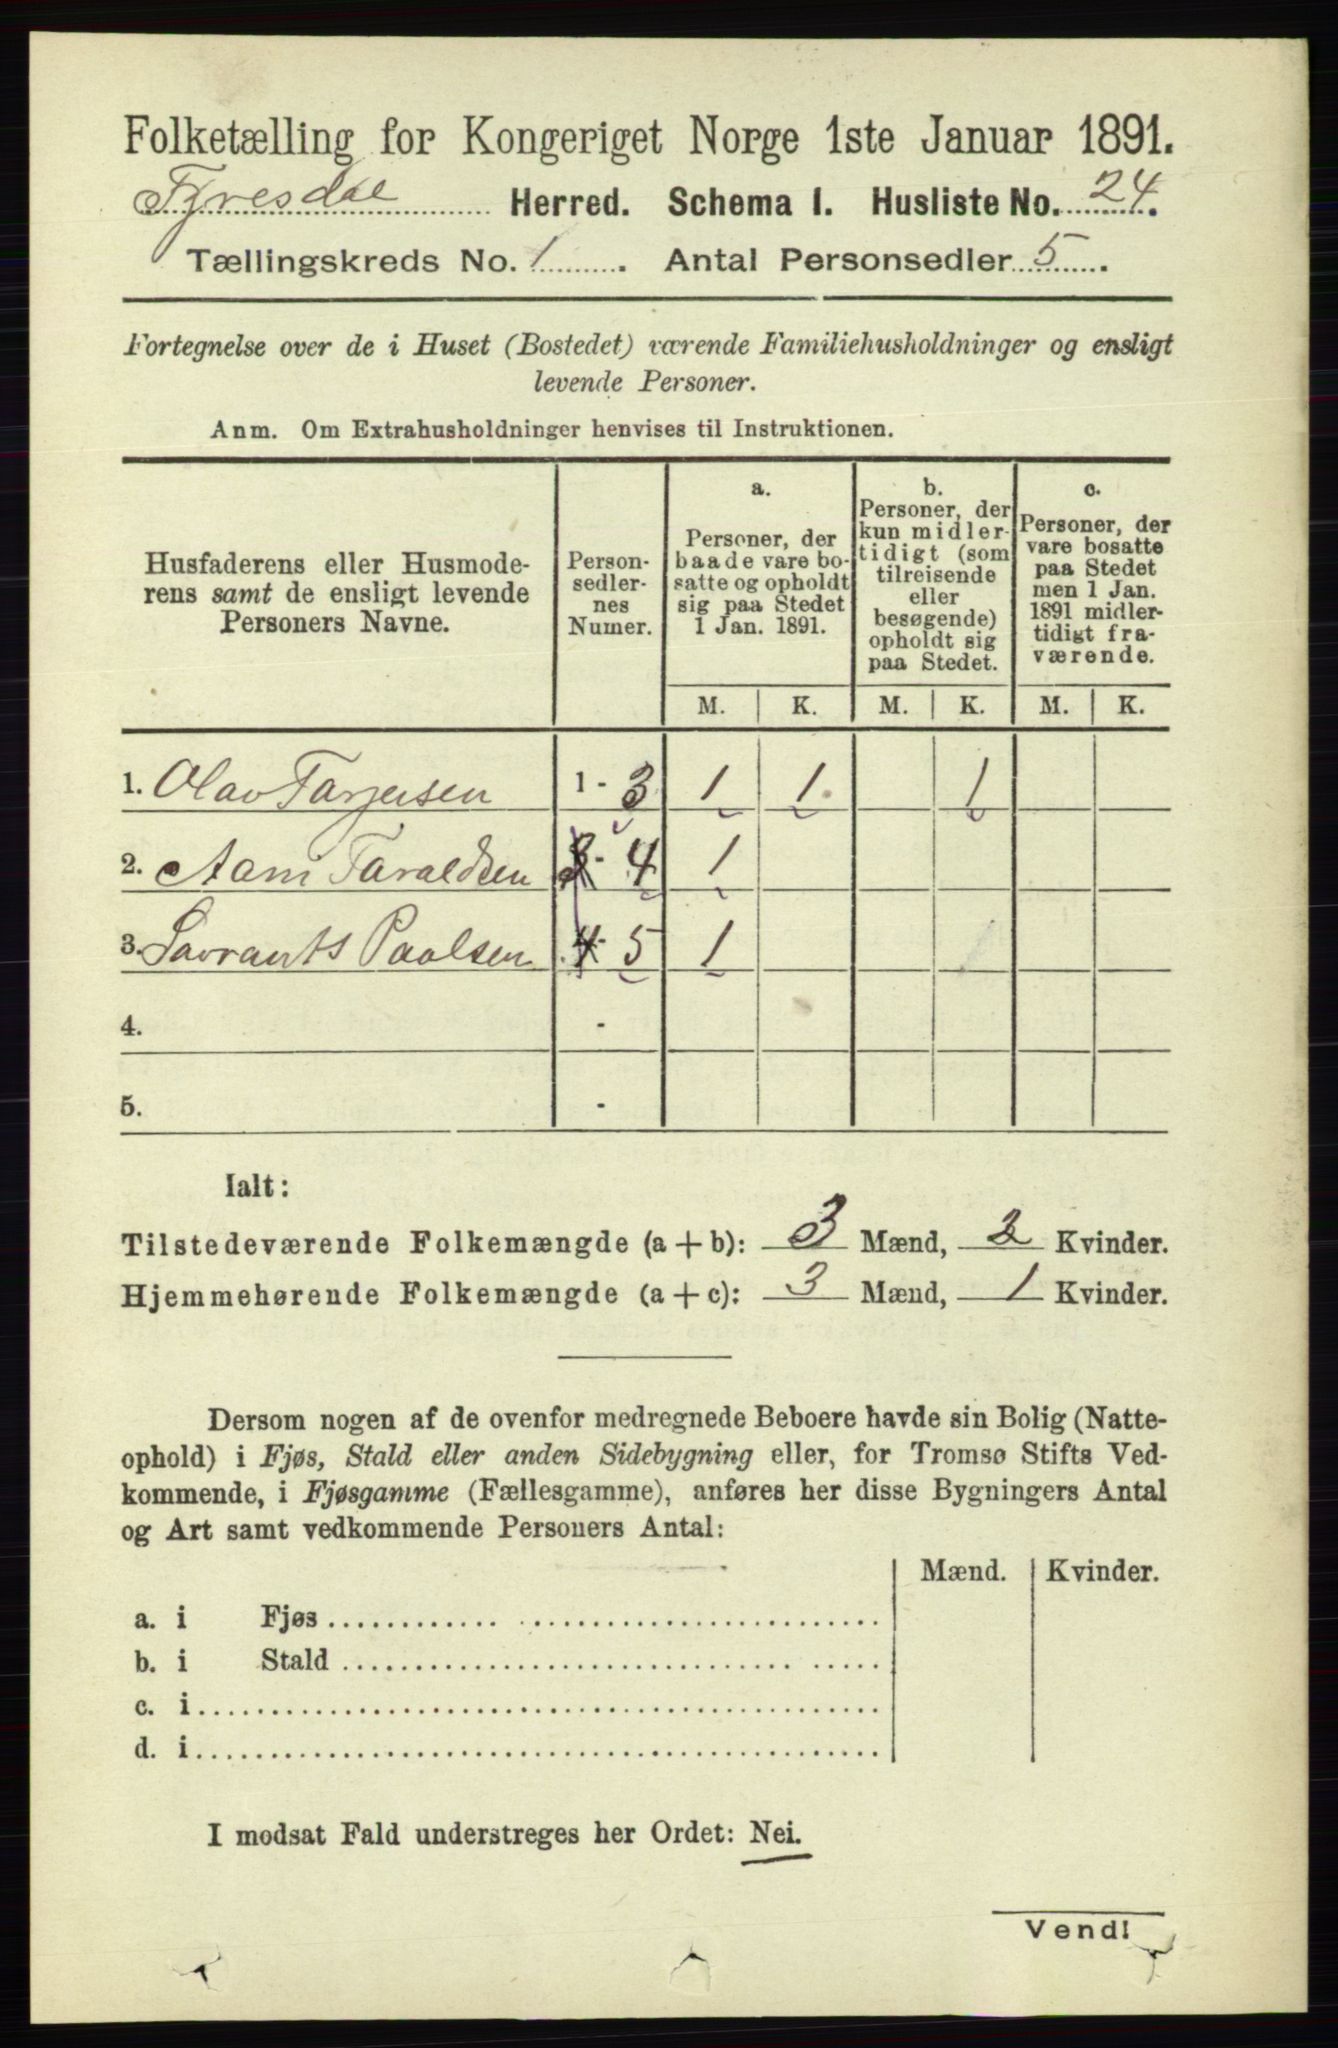 Folketælling for Kongeriget Norge 1ste Januar 1891.
Tyresdal Herred. Schema I. Husliste No. 24.
Tællingskreds No. 1. Antal Personsedler 5.
Fortegnelse over de i Huset (Bostedet) værende Familiehusholdninger og ensligt
levende Personer.
Anm. Om Extrahusholdninger henvises til Instruktionen.
Husfaderens eller Husmode-
rens samt de ensligt levende
Personers Navne.
Person-
sedler-
nes
Numer.
a.
Personer, der
baade vare bo-
satte og opholdt
sig paa Stedet
1 Jan. 1891.
b.
Personer, der
kun midler-
tidigt (som
tilreisende
eller
besøgende)
opholdt sig
paa Stedet.
c.
Personer, der
vare bosatte
paa Stedet
men 1 Jan.
1891 midler-
tidigt fra-
værende.
M. K. M. K. M. K.
1. Olav Tarjeisen 1 - 3 1 1 1
2. Aani Taraldsen 3 - 4 1
3. Savrants Paalsen 4 - 5 1
4. -
5. -
Ialt:
Tilstedeværende Folkemængde (a + b): 3 Mænd, 2 Kvinder.
Hjemmehørende Folkemængde (a + c): 3 Mænd, 1 Kvinder.
Dersom nogen af de ovenfor medregnede Beboere havde sin Bolig (Natte-
ophold) i Fjøs, Stald eller anden Sidebygning eller, for Tromsø Stifts Ved-
kommende, i Fjøsgamme (Fællesgamme), anføres her disse Bygningers Antal
og Art samt vedkommende Personers Antal:
Mænd. Kvinder.
a. i Fjøs
b. i Stald
c. i
d. i
I modsat Fald understreges her Ordet: Nei.
Vend!